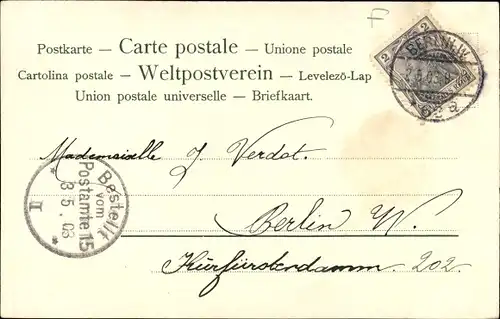 Postkarte — Carte postale — Unione postale
Cartolina postale — Weltpostverein — Levelezō-Lap
Union postale universelle — Briefkaart.
2 2
BERLIN W.
Mademoiselle J. Verdot.
Bestellt
vom
Postamte 15
3 5. 03
II
Berlin W.
Kurfürsterdamm. 202.